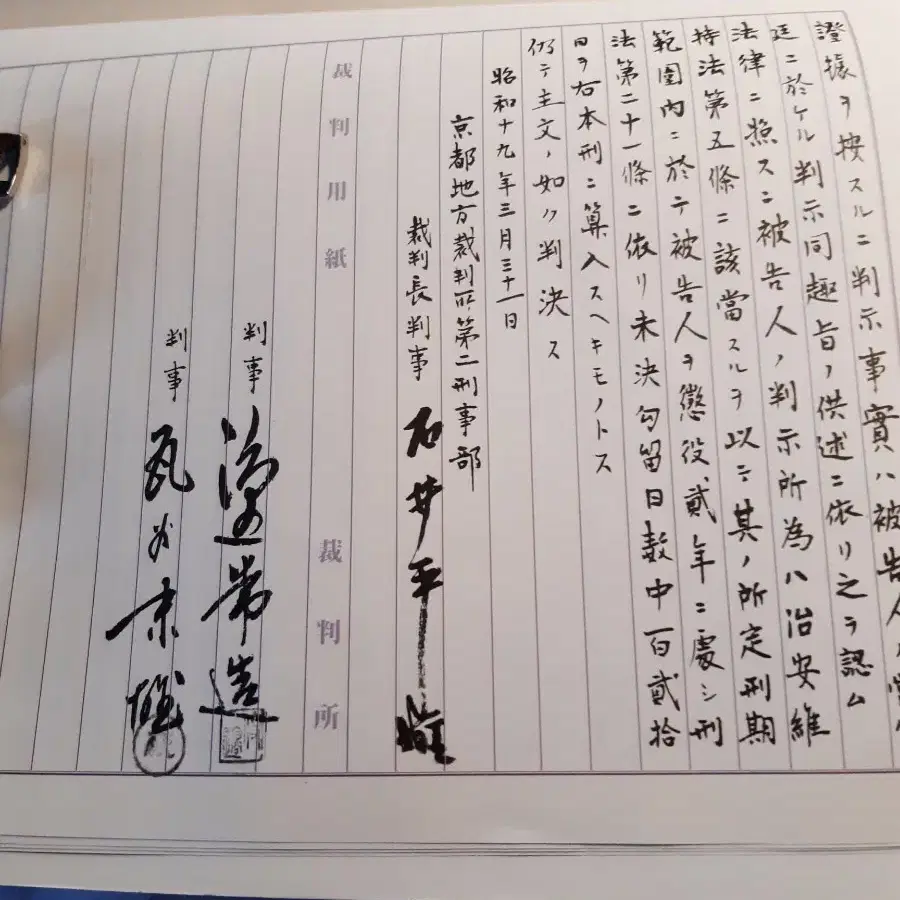 證據ヲ按スルニ判示事實ハ被告人ノ當
廷ニ於ケル判示同趣旨ノ供述ニ依リ之ヲ認ム
法律ニ照スニ被告人ノ判示所為ハ治安維
持法第五條ニ該當スルヲ以テ其ノ所定刑期
範圍内ニ於テ被告人ヲ懲役貳年ニ處シ刑
法第二十一條ニ依リ未決勾留日數中百貳拾
日ヲ右本刑ニ算入スヘキモノトス
仍テ主文ノ如ク判決ス
昭和十九年三月三十一日
京都地方裁判所第二刑事部
裁判長判事 石井平雄
裁判用紙 裁判所
判事 渡邊常造
判事 瓦谷末雄